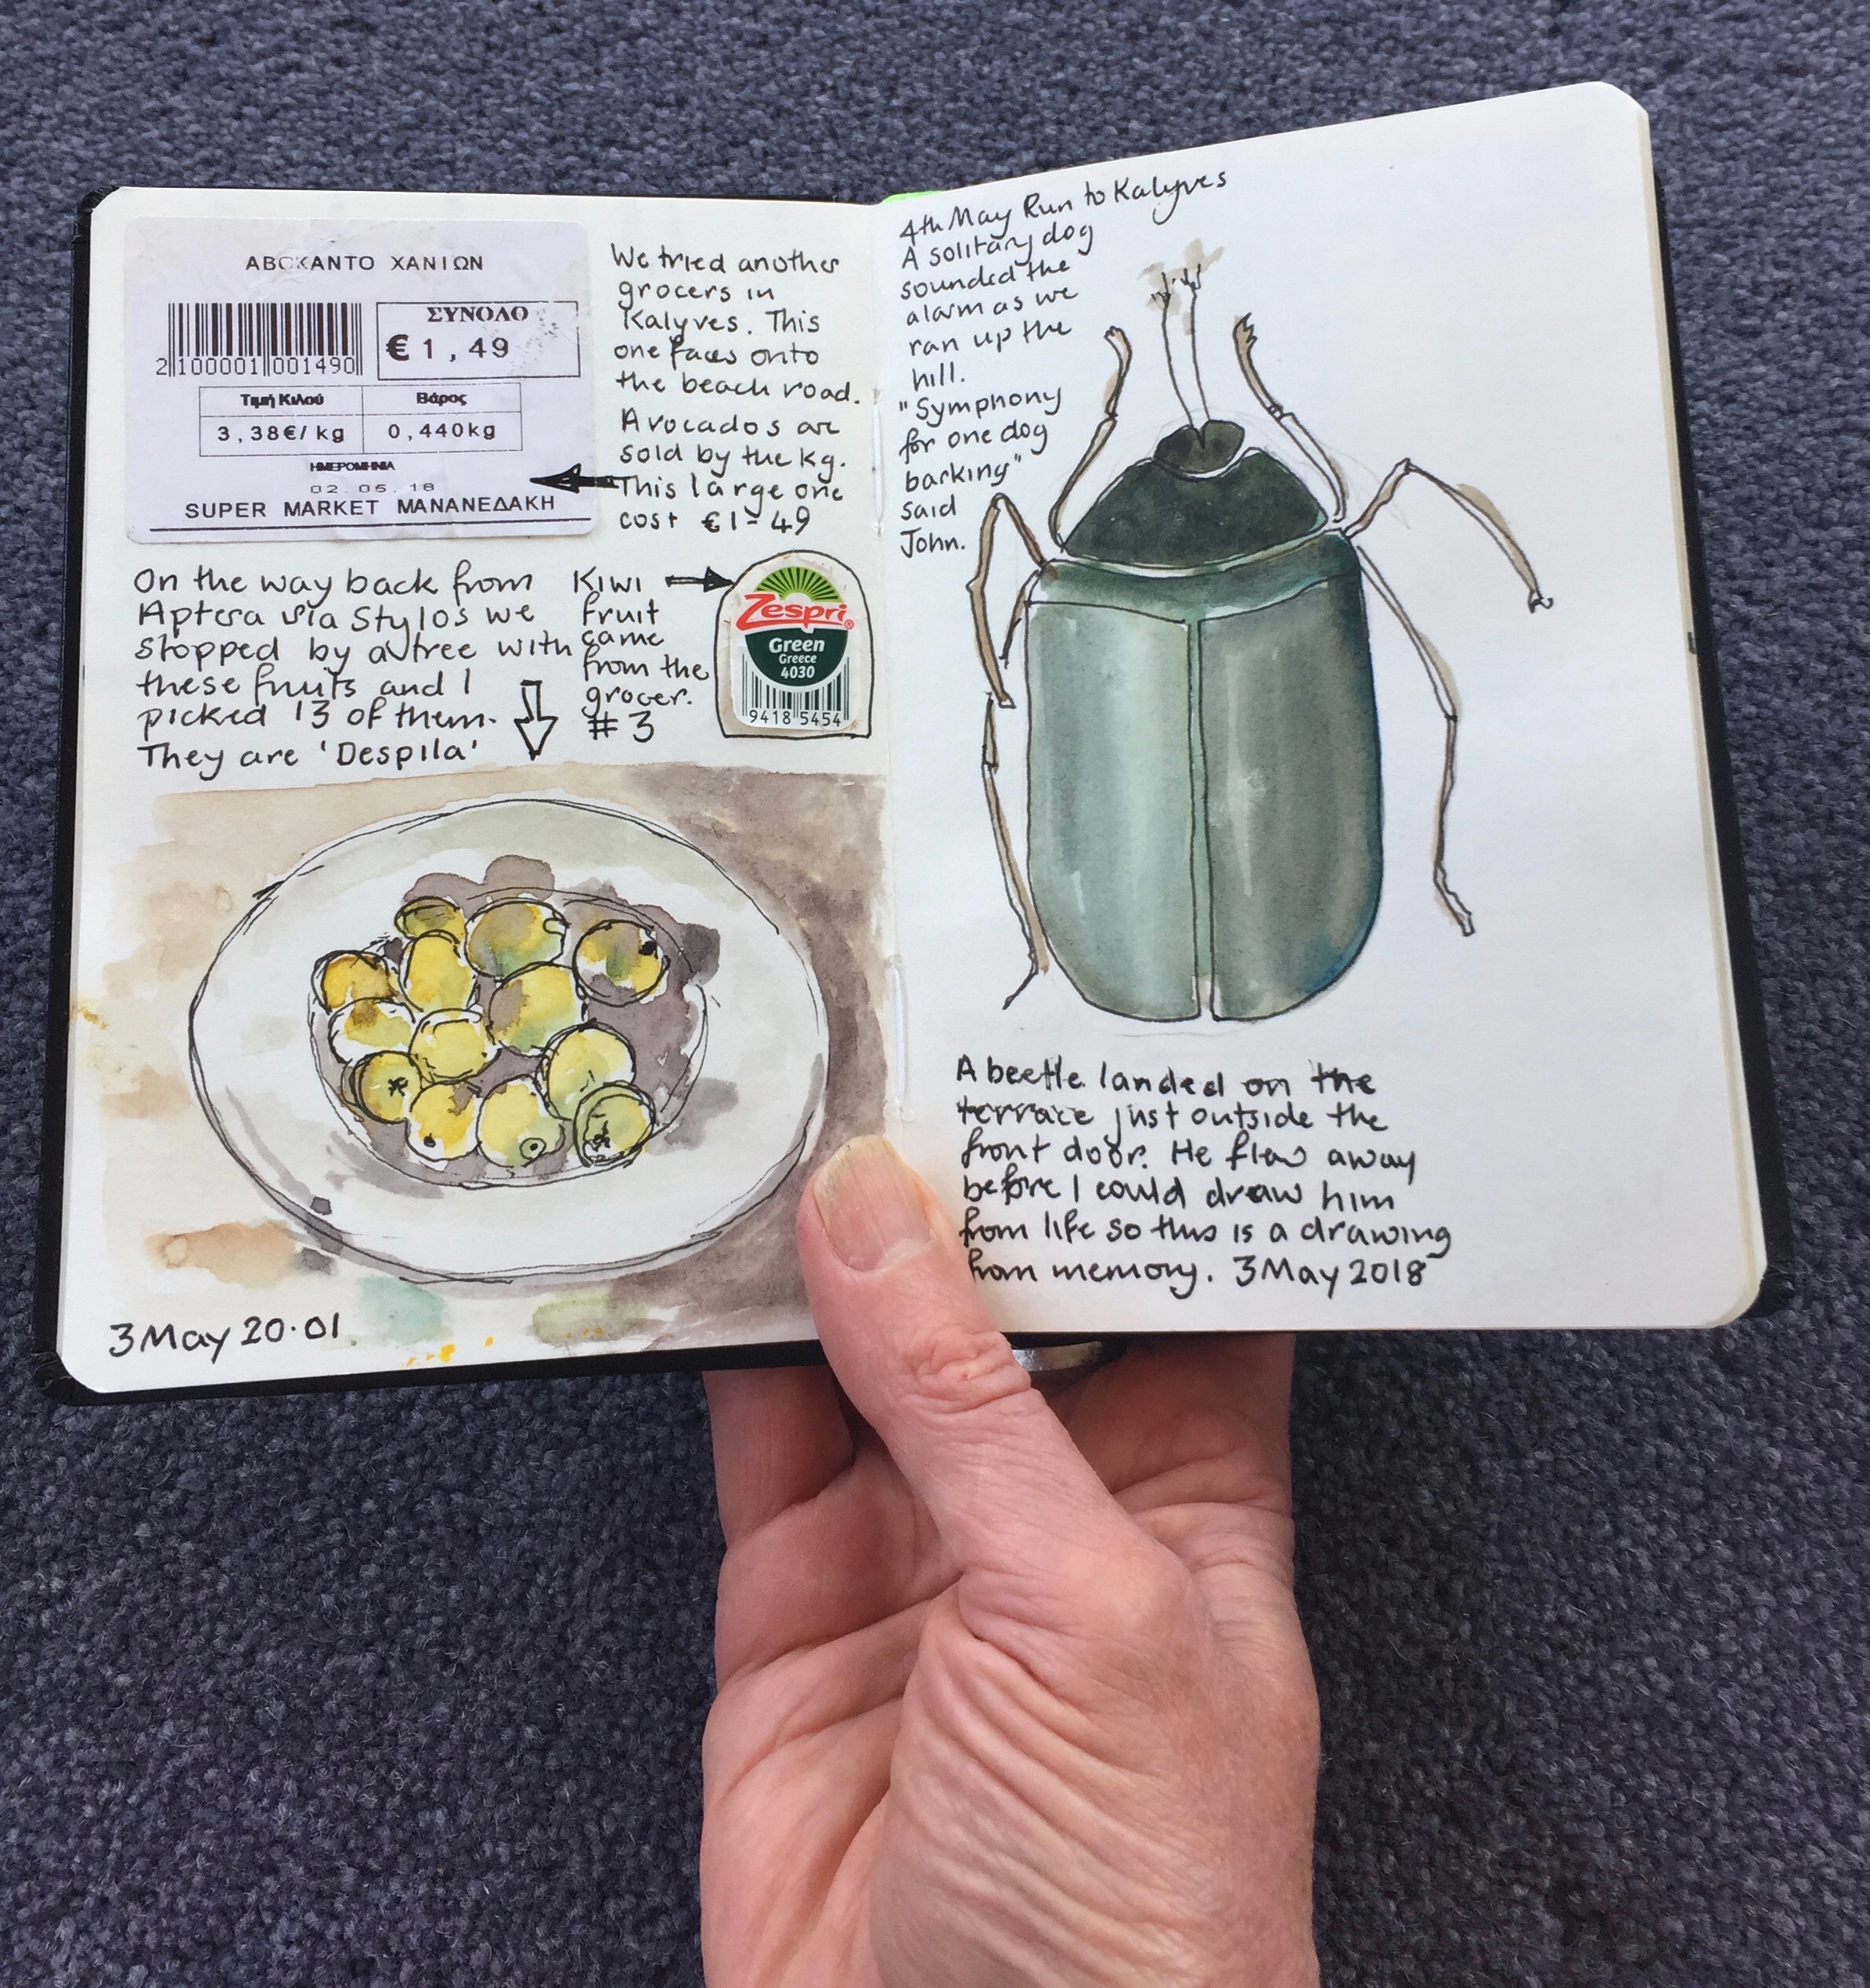 ΑΒΟΚΑΝΤΟ ΧΑΝΙΩΝ
2 100001 001490
ΣΥΝΟΛΟ
€ 1,49
Τιμή Κιλού
Βάρος
3,38€/kg
0,440kg
ΗΜΕΡΟΜΗΝΙΑ
02.05.18
SUPER MARKET ΜΑΝΑΝΕΔΑΚΗ
We tried another
grocers in
Kalyves. This
one faces onto
the beach road.
Avocados are
sold by the kg.
This large one
cost €1-49
On the way back from
Aptera via Stylos we
stopped by a tree with
these fruits and I
picked 13 of them.
They are 'Despila'
Kiwi
fruit
came
from the
grocer.
#3
Zespri®
Green
Greece
4030
9418 5454
3 May 20.01
4th May Run to Kalyves
A solitary dog
sounded the
alarm as we
ran up the
hill.
"Symphony
for one dog
barking"
said
John.
A beetle landed on the
terrace just outside the
front door. He flew away
before I could draw him
from life so this is a drawing
from memory. 3 May 2018